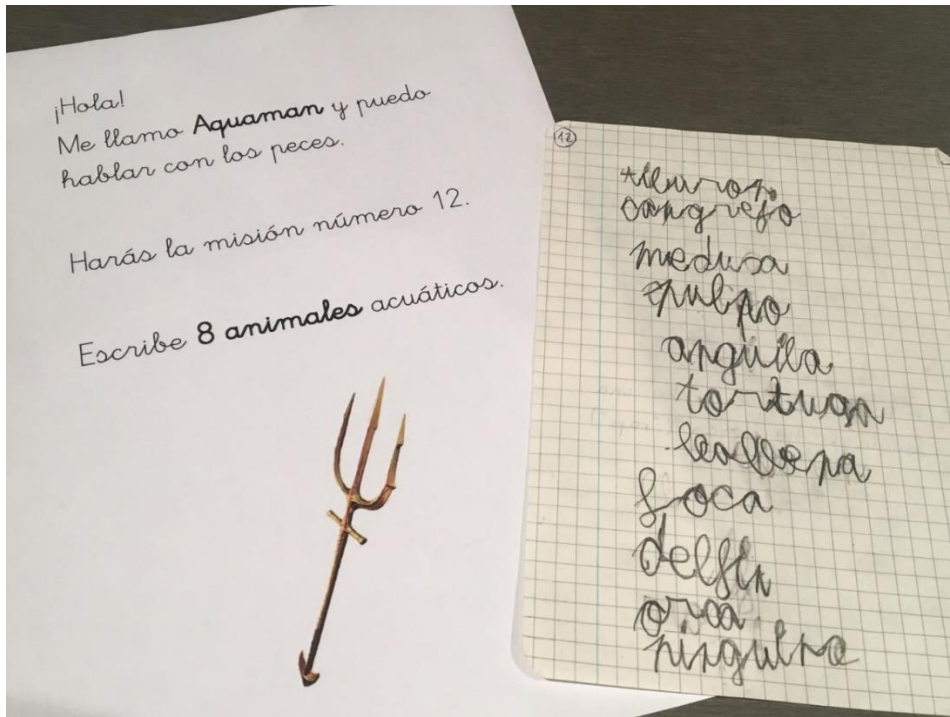 ¡Hola!
Me llamo Aquaman y puedo
hablar con los peces.
Harás la misión número 12.
Escribe 8 animales acuáticos.
12
cangrejo
medusa
pulpo
anguila
tortuga
foca
delfin
orca
pinguino